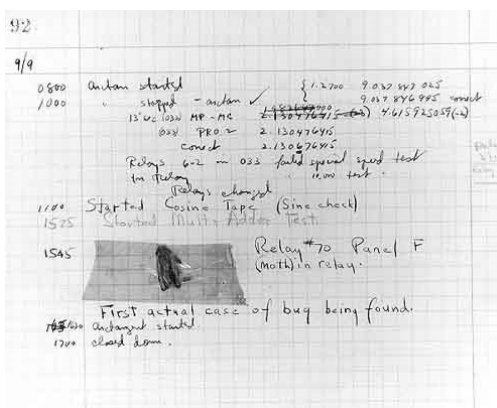 92
9/9
0800 Antan started { 1.2700 9.037 847 025
1000 " stopped - antan ✓ 9.037 846 995 conect
13" uc (032) MP - MC 2.130476415 (-3) 4.615925059(-2)
(033) PRO 2 2.130476415
conect 2.130676415
Relays 6-2 in 033 failed special speed test
in relay 10.000 test.
Relays changed
1100 Started Cosine Tape (Sine check)
1525 Started Mult+Adder Test.
1545 Relay #70 Panel F
(moth) in relay.
First actual case of bug being found.
1630 antangent started
1700 closed down.